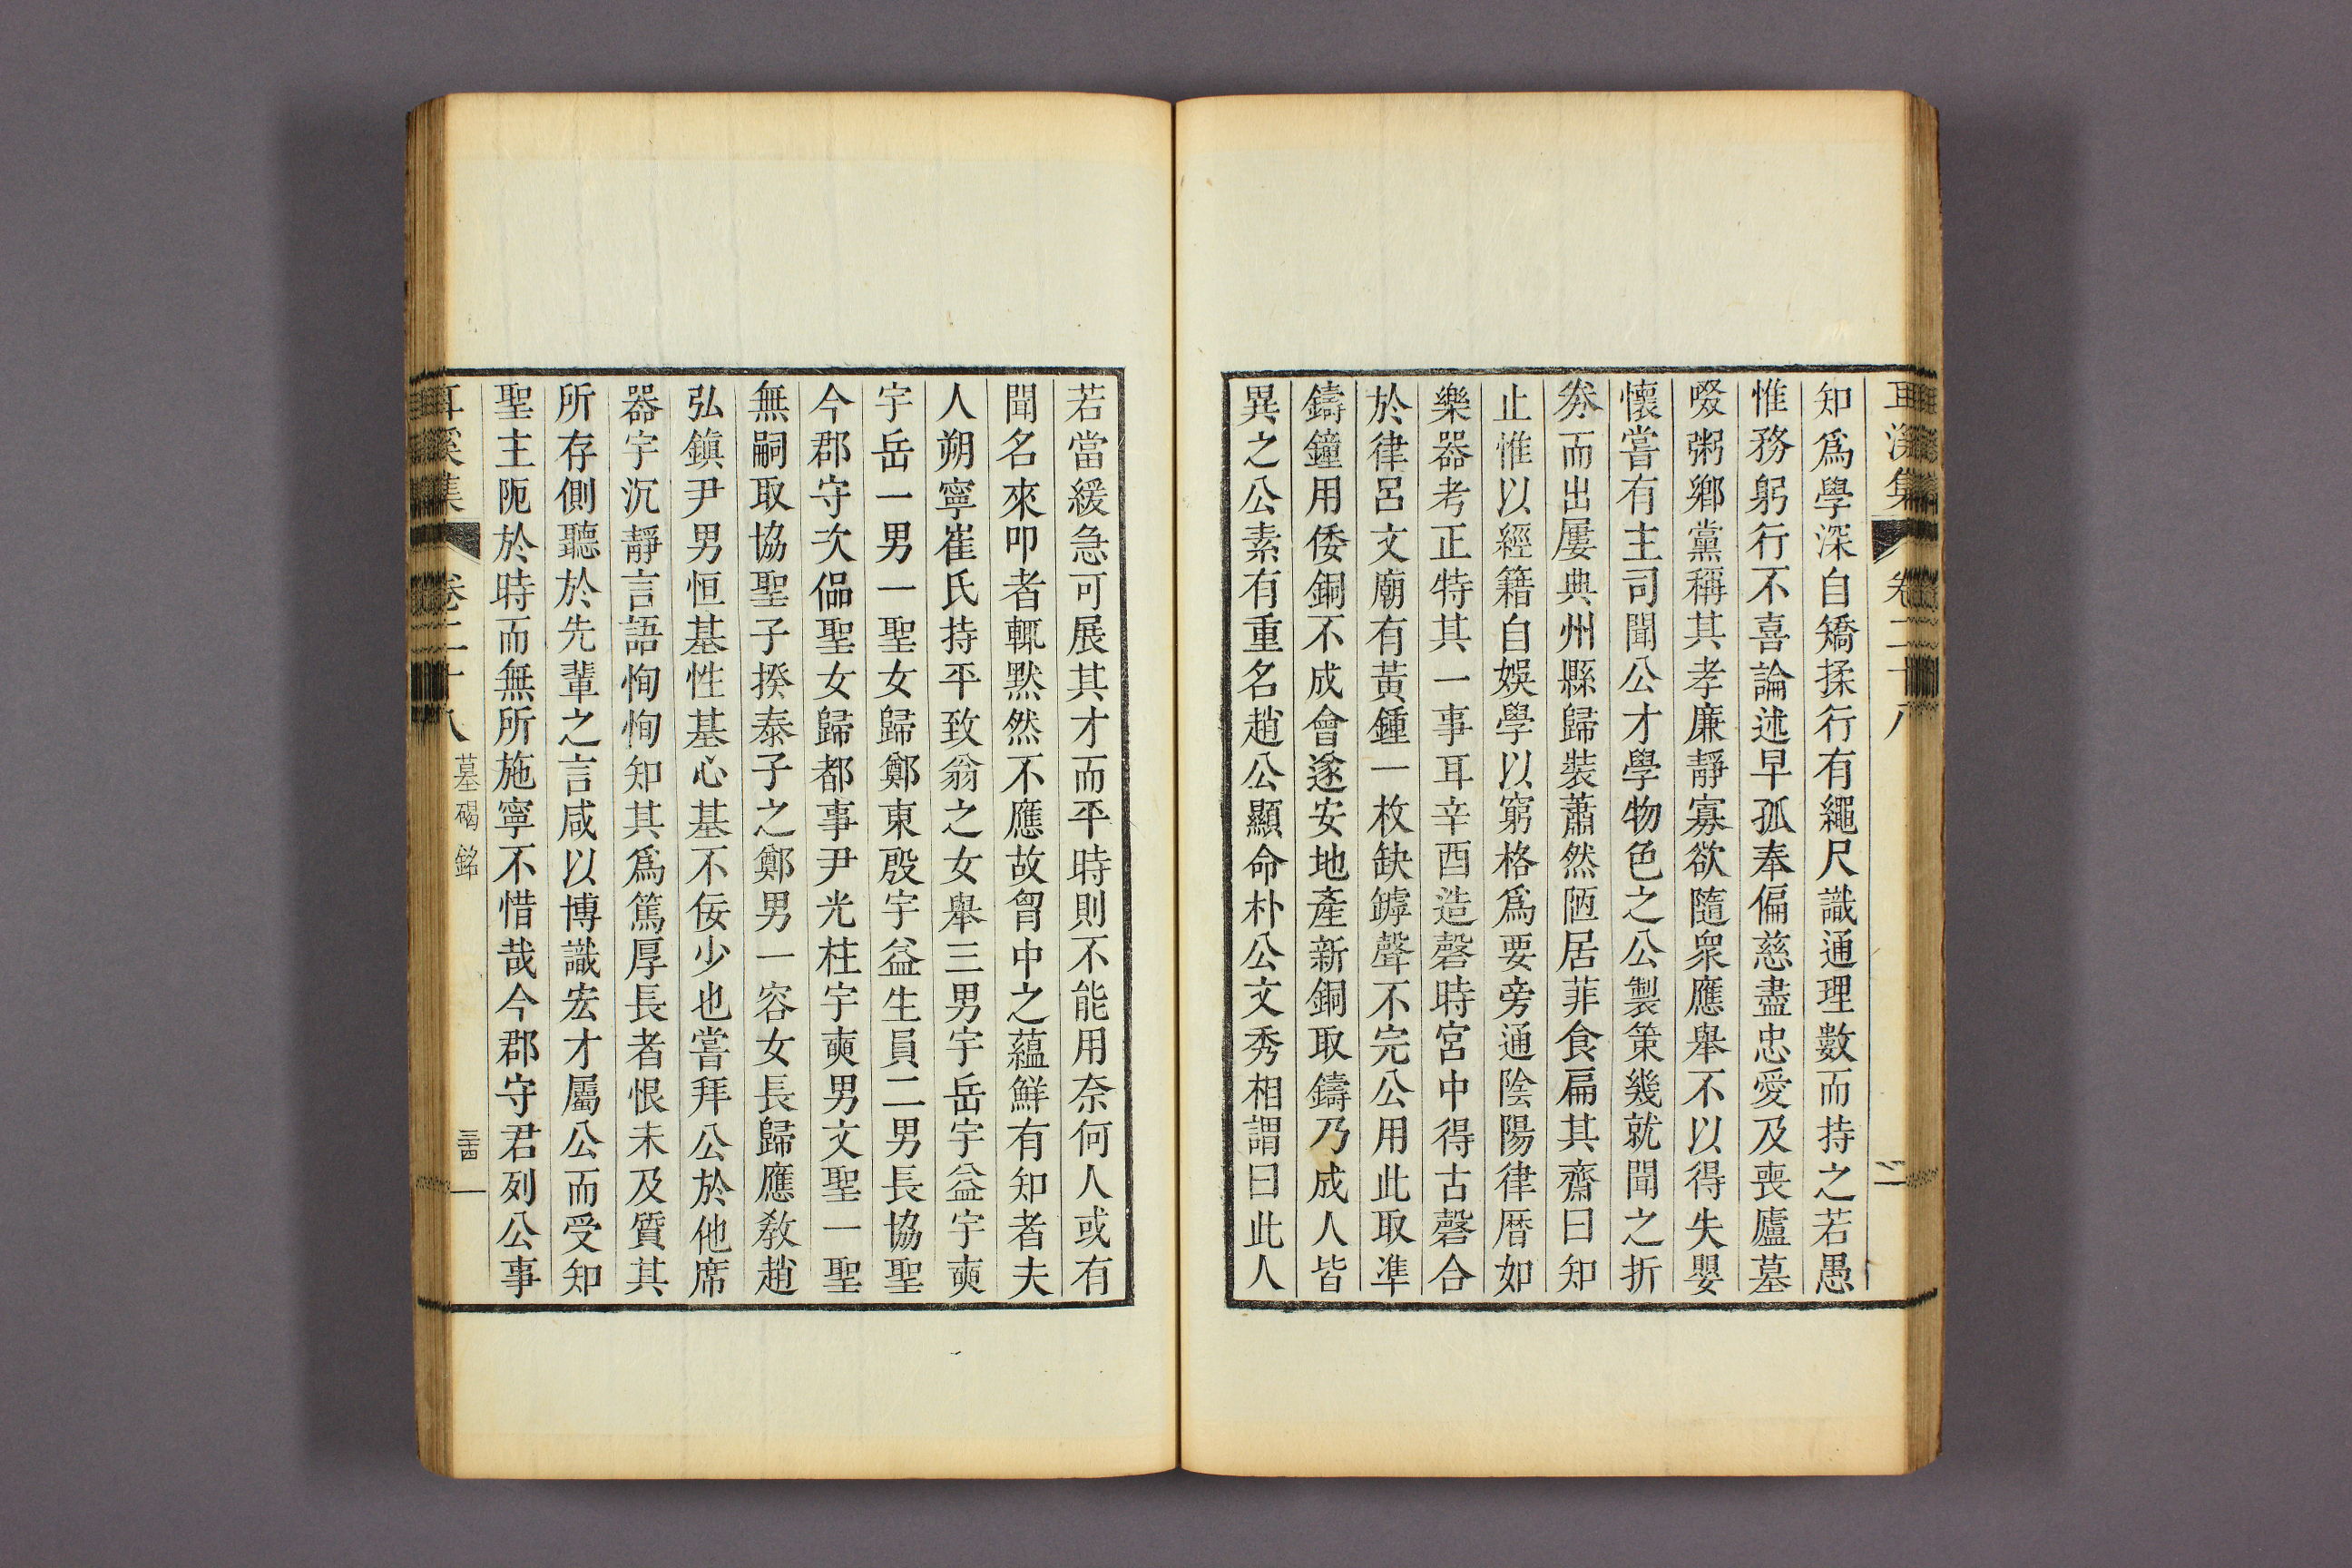 知爲學深自矯揉行有繩尺識通理數而持之若愚
惟務躬行不喜論述早孤奉偏慈盡忠愛及喪廬墓
啜粥鄉黨稱其孝廉靜寡欲隨衆應舉不以得失嬰
懷嘗有主司聞公才學物色之公製策幾就聞之折
券而出屢典州縣歸裝蕭然陋居菲食扁其齋曰知
止惟以經籍自娛學以窮格爲要旁通陰陽律曆如
樂器考正特其一事耳辛酉造磬時宮中得古磬合
於律呂文廟有黃鍾一枚缺罅聲不完公用此取準
鑄鐘用倭銅不成會遂安地產新銅取鑄乃成人皆
異之公素有重名趙公顯命朴公文秀相謂曰此人
若當緩急可展其才而平時則不能用奈何人或有
聞名來叩者輒默然不應故胷中之蘊鮮有知者夫
人朔寧崔氏持平致翁之女舉三男宇岳宇益宇奭
宇岳一男一聖女歸鄭東殷宇益生員二男長協聖
今郡守次偘聖女歸都事尹光柱宇奭男文聖一聖
無嗣取協聖子揆泰子之鄭男一容女長歸應敎趙
弘鎭尹男恒基性基心基不佞少也嘗拜公於他席
器宇沉靜言語恂恂知其爲篤厚長者恨未及質其
所存側聽於先輩之言咸以博識宏才屬公而受知
聖主阨於時而無所施寧不惜哉今郡守君列公事
耳溪集 卷二十八 墓碣銘 三十四